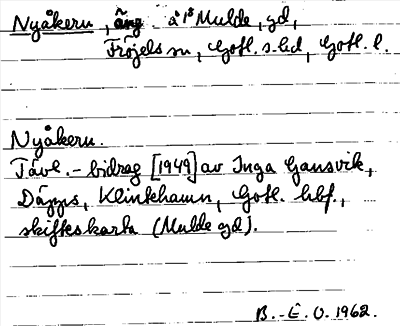 Nyåkern, äng å 1⁸ Mulde, gd,
Fröjels sn, Gotl. s. hd, Gotl. l.
Nyåkern.
Tävl.-bidrag [1949] av Inga Gansvik,
Däpps, Klintehamn, Gotl. hbf.,
skifteskarta (Mulde gd).
B.-E. O. 1962.